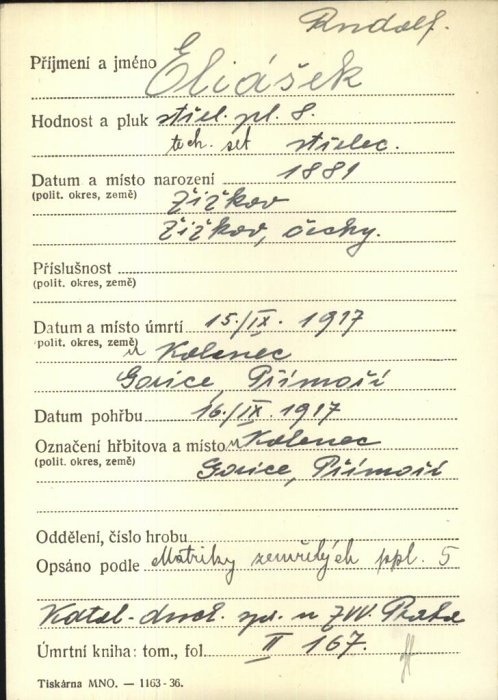 Rudolf.
Příjmení a jméno Eliášek
Hodnost a pluk střel. pl. 8.
tech. set střelec.
Datum a místo narození 1881
(polit. okres, země) Žižkov
Žižkov, Čechy.
Příslušnost
(polit. okres, země)
Datum a místo úmrtí 15./IX. 1917
(polit. okres, země) u Kolenec
Gorice, Přímoří
Datum pohřbu 16./IX. 1917
Označení hřbitova a místo u Kolenec
(polit. okres, země) Gorice, Přímoří
Oddělení, číslo hrobu
Opsáno podle Matriky zemřelých ppl. 5
Katol. duch. sp. u ZVV. Praha
Úmrtní kniha: tom., fol. II 167.
Tiskárna MNO. — 1163-36.